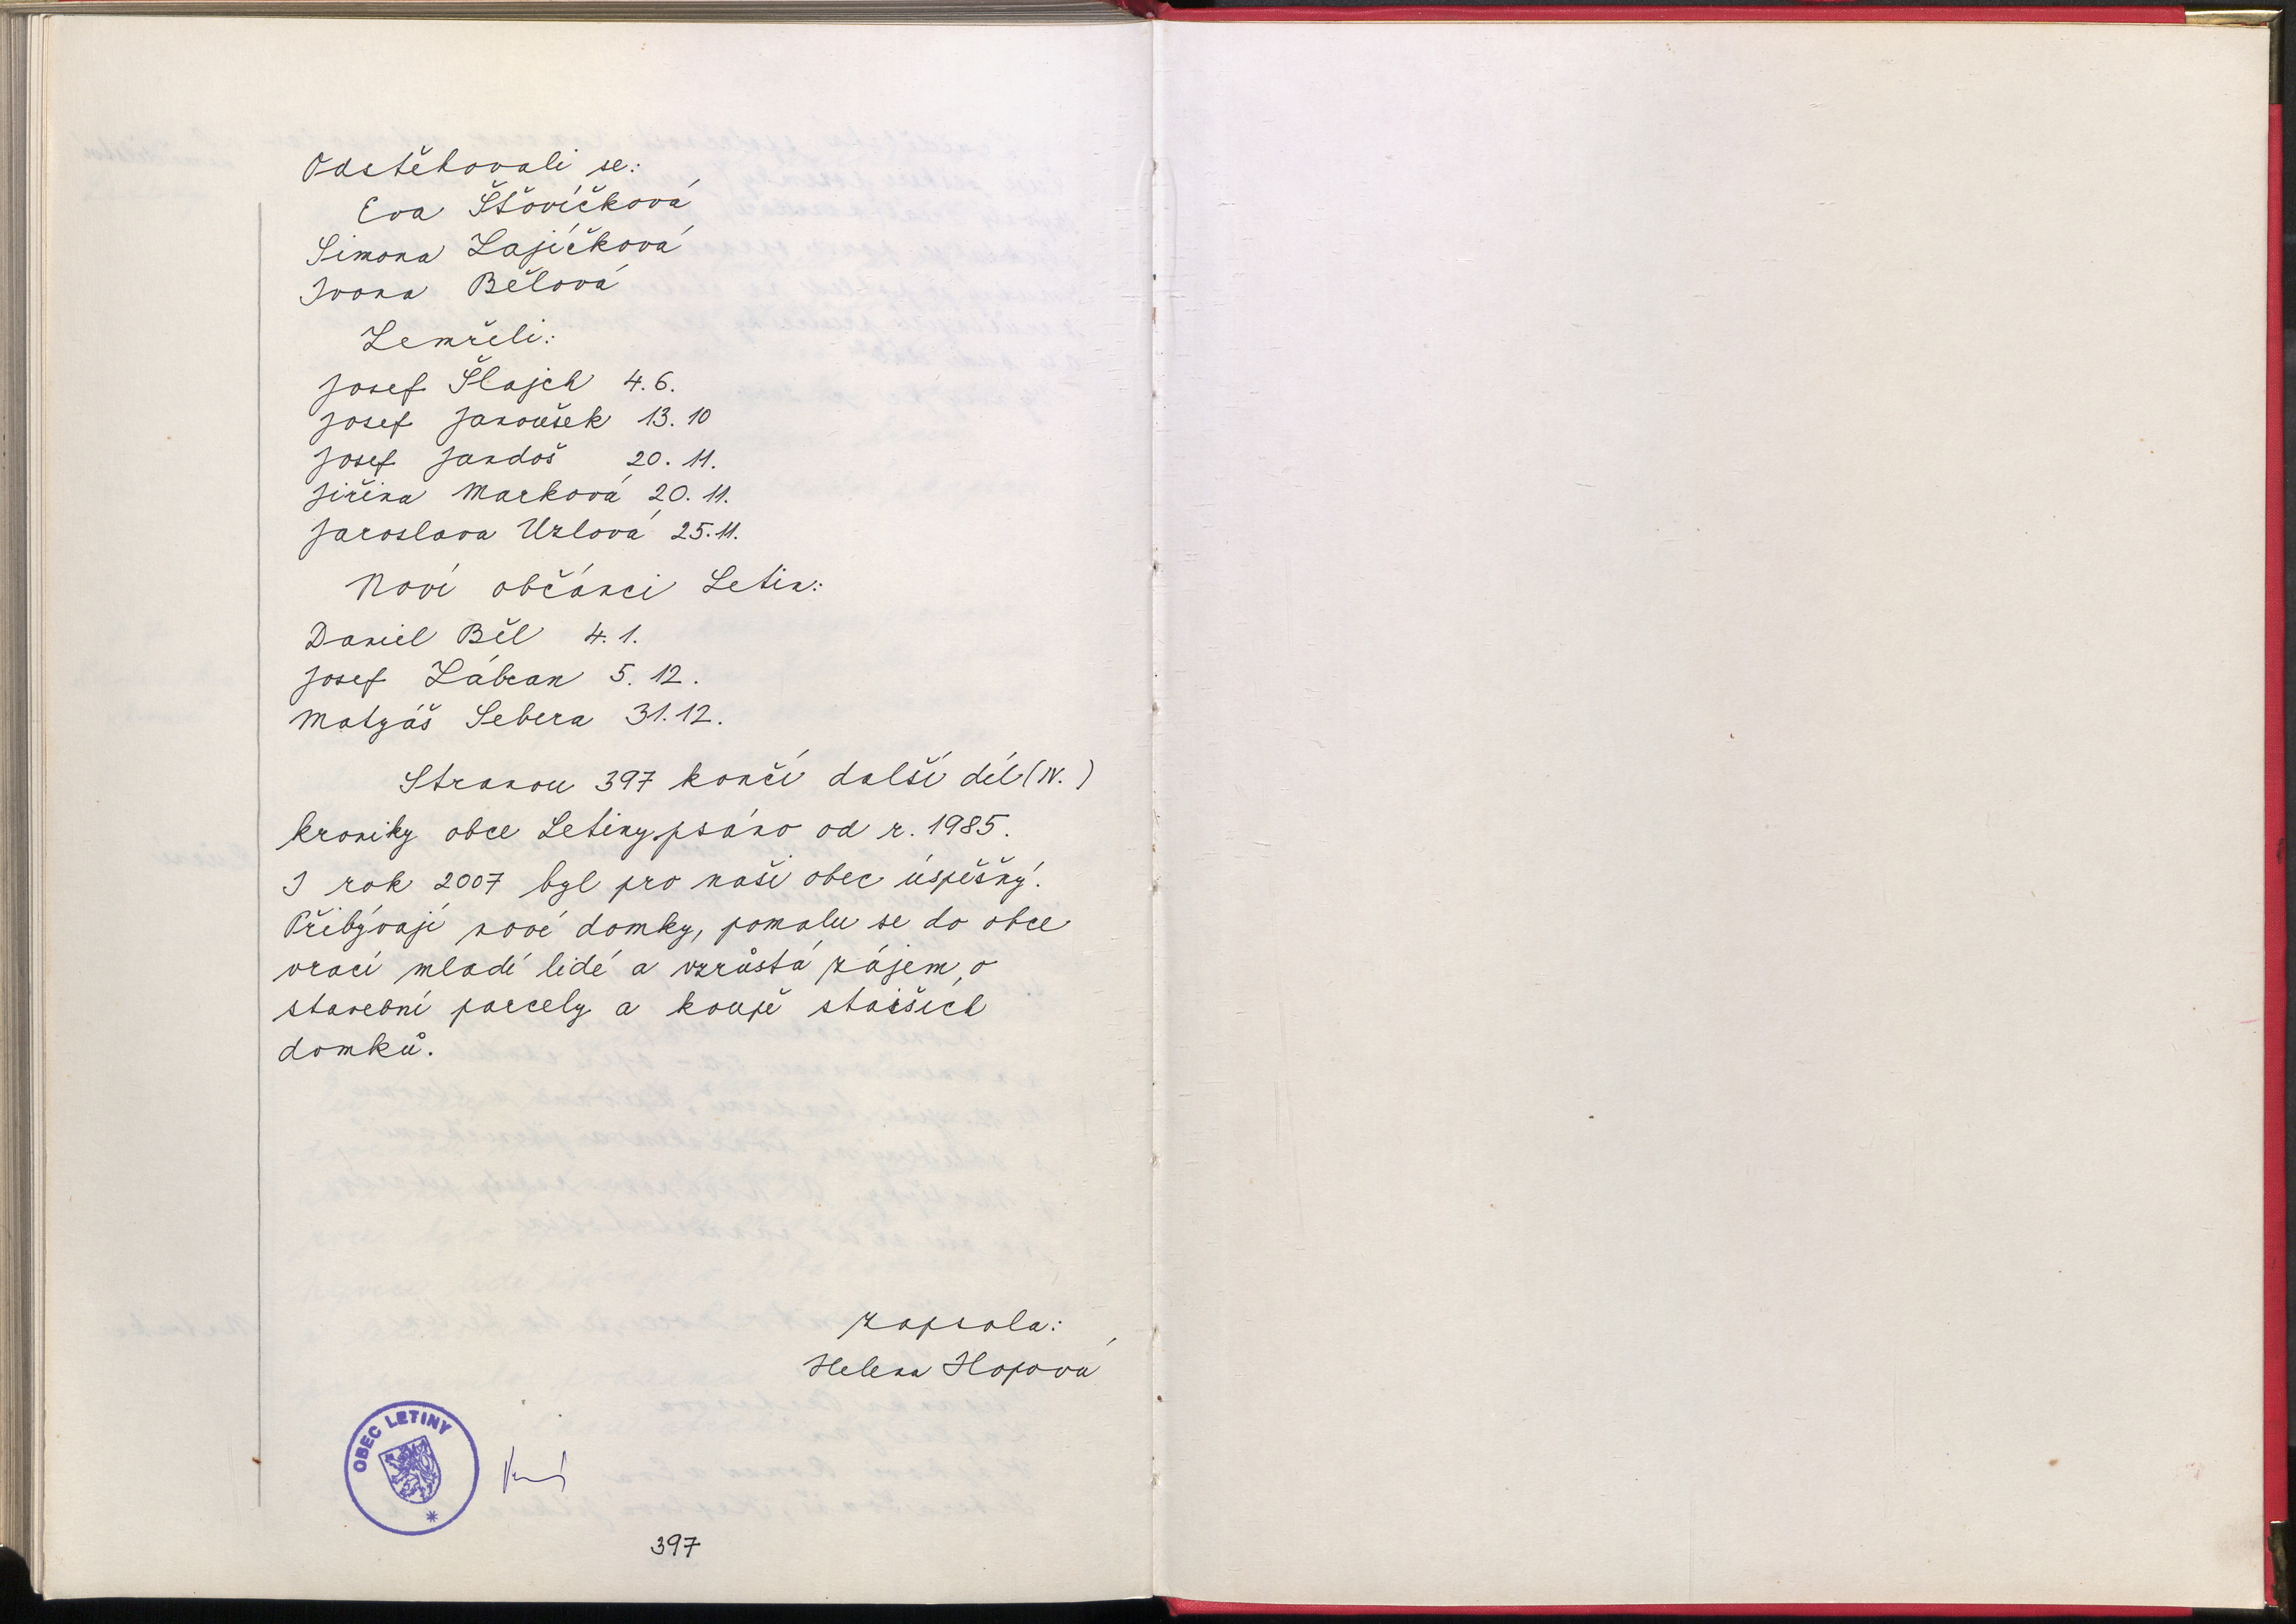 Odstěhovali se:
Eva Šťovíčková
Simona Zajíčková
Ivona Bělová
Zemřeli:
Josef Šlajch 4. 6.
Josef Janoušek 13. 10
Josef Jandoš 20. 11.
Jiřina Marková 20. 11.
Jaroslava Uzlová 25. 11.
Noví občánci Letin:
Daniel Běl 4. 1.
Josef Zábran 5. 12.
Matyáš Sebera 31. 12.
Stranou 397 končí další díl (IV.)
kroniky obce Letiny psáno od r. 1985.
I rok 2007 byl pro naši obec úspěšný.
Přibývají nové domky, pomalu se do obce
vrací mladí lidé a vzrůstá zájem o
stavební parcely a koupě starších
domků.
zapsala:
Helena Hopová
OBEC LETINY
397